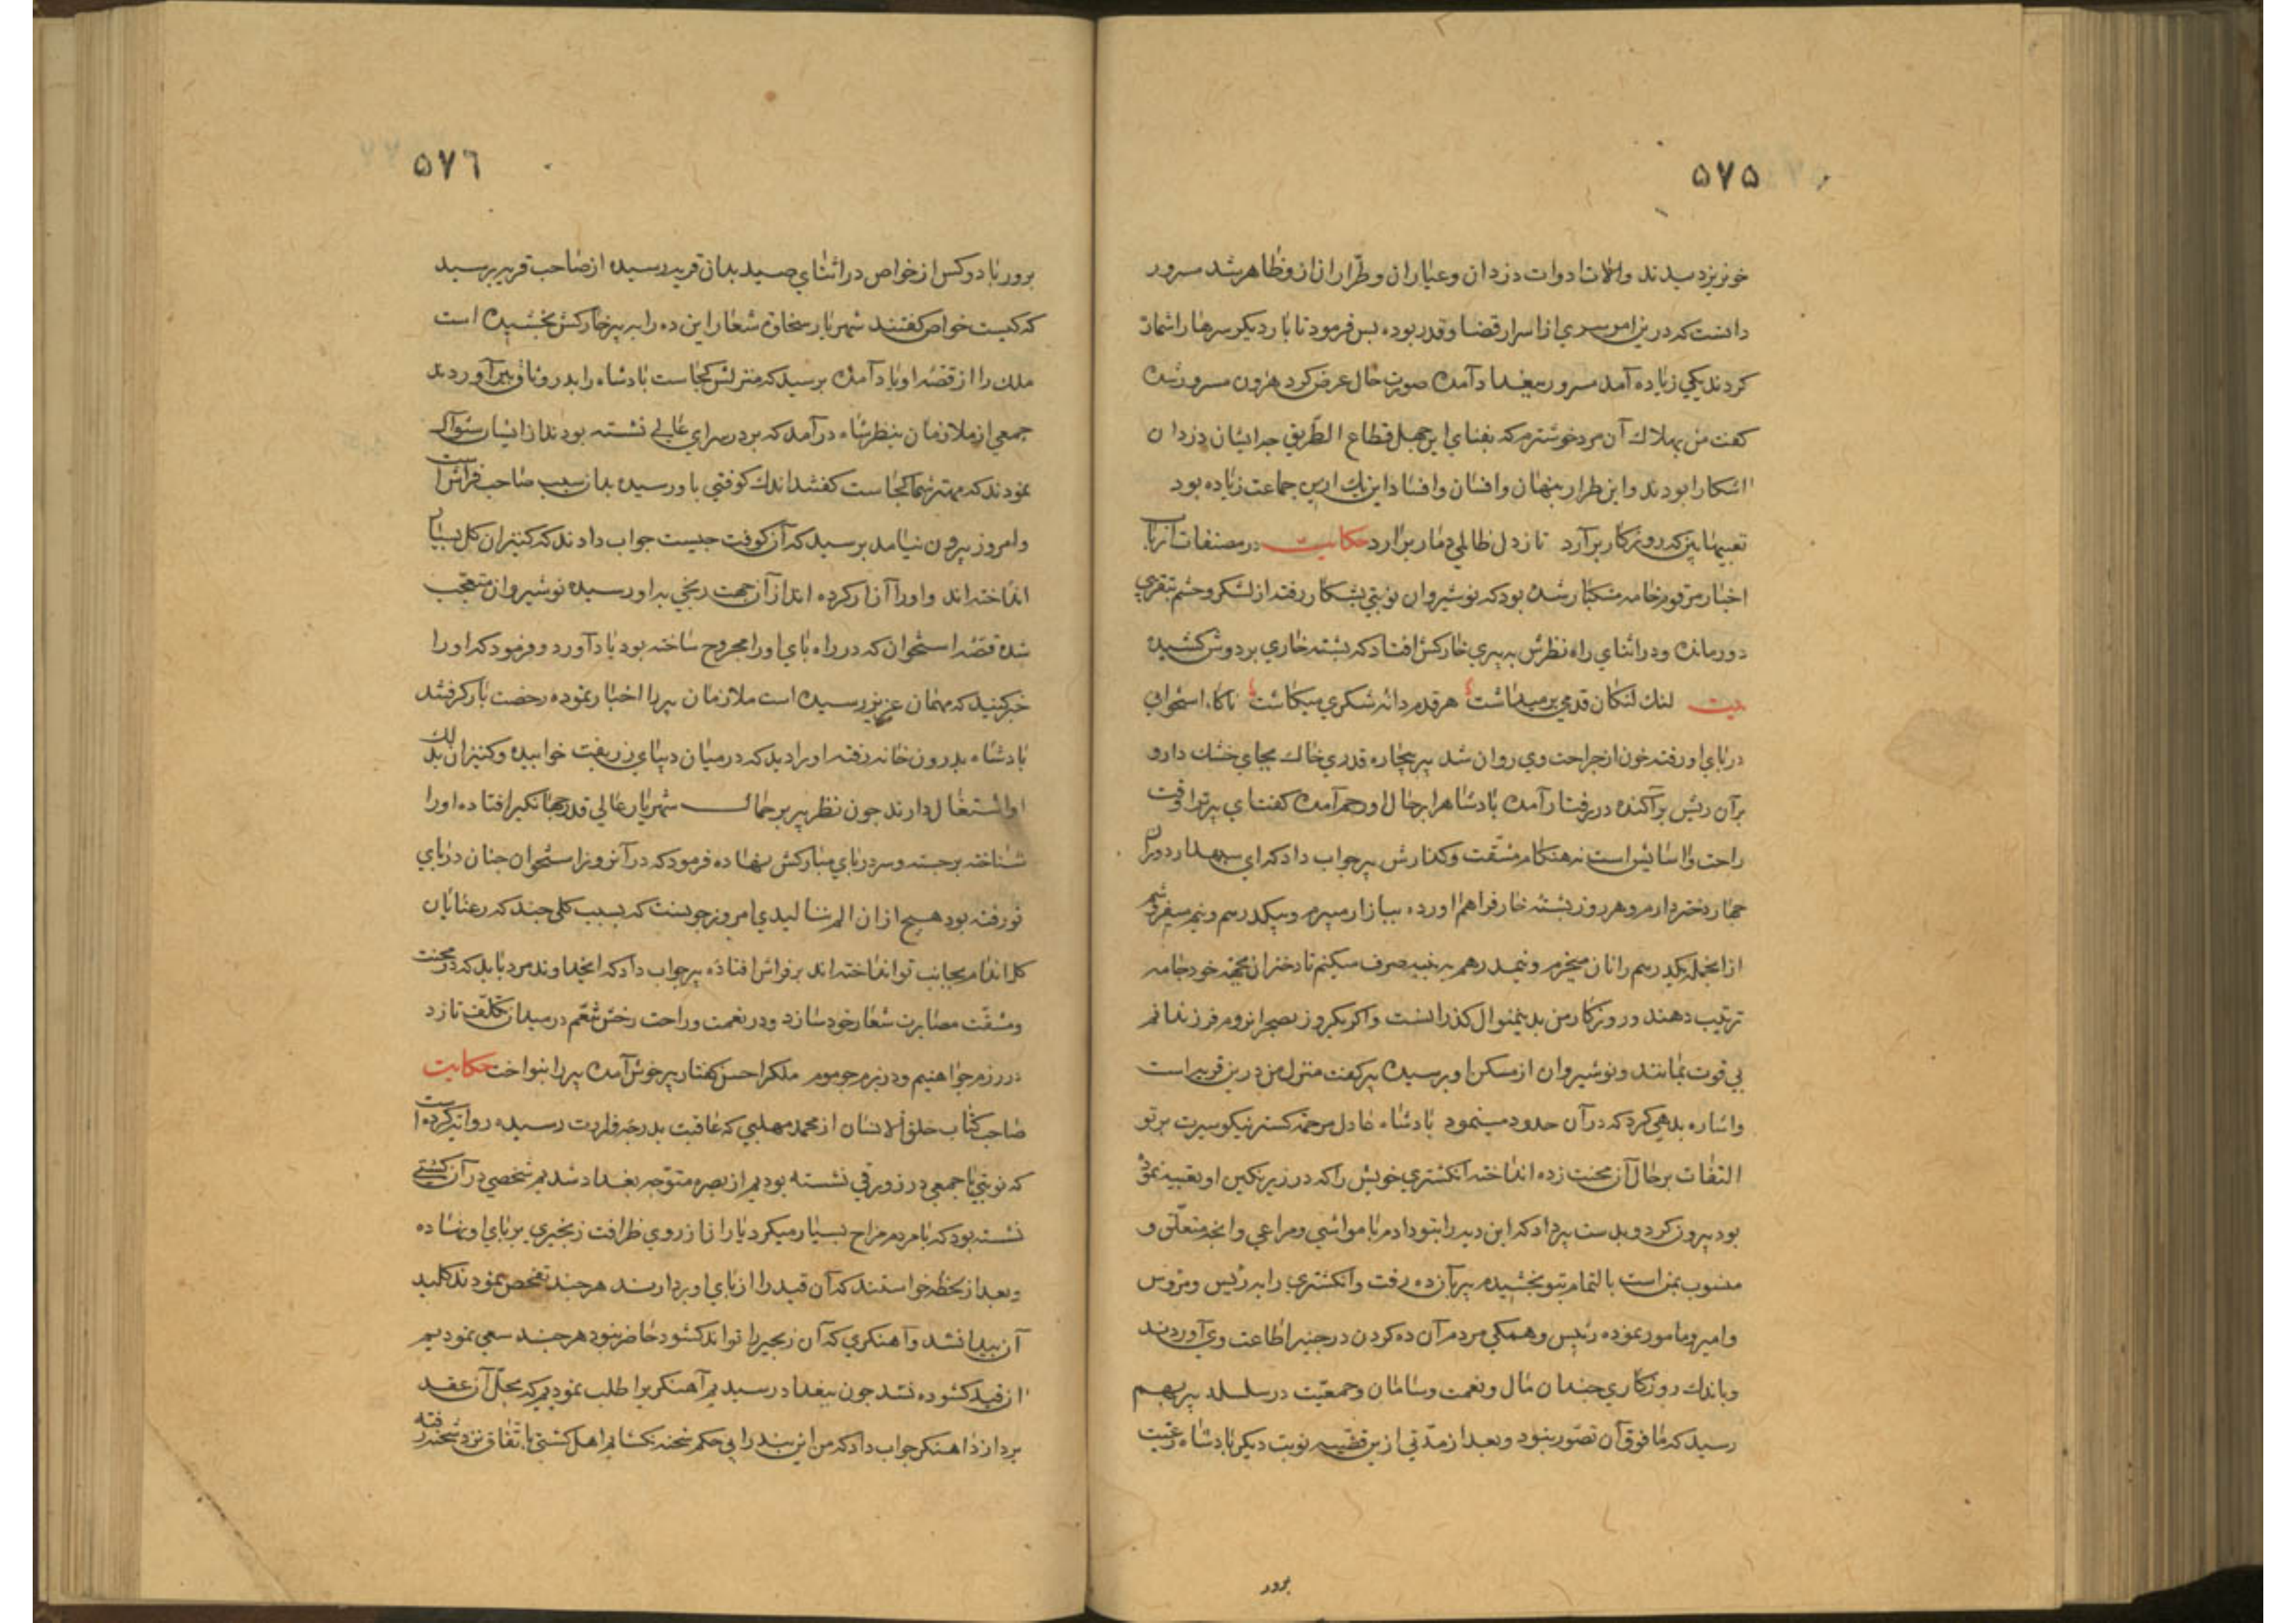 ۵۷۵
خونریز دیدند والات ادوات دزدان وعیاران وطراران ازو ظاهر شد مسرور
دانست که درین امر سری از اسرار قضا وقدر بوده بس فرمود تا بار دیکر سرها را شمار
کردند یکی زیاده آمد مسرور ببغداد آمده صورت حال عرض کرد هرون مسرور شده
کفت من بهلاك آن مرد خوشترم که بفنای این چهل قطاع الطریق چه ایشان دزدان
اشکارا بودند واین طرار بنهان وافسان وافساد این یك ازین جماعت زیاده بود
تعبیها بین که روزکار برآرد تا زدل ظالمی دمار برآرد حکایت در مصنفات ارباب
اخبار مرقوم خامه مشکبار شده بود که نوشیروان نوبتی بشکار رفته از لشکر وحشم بتقریبی
دور مانده ودر اثنای راه نظرش به بیری خارکش افتاد که بشته خاری بر دوش کشیده
بیت لنك لنکان قدمی بر میداشت هر قدم دانه شکری میکاشت ناکاه استخوانی
در بای او رفته خون از جراحت وی روان شد بیر بیچاره قدری خاك بجای خشك دارو
بر آن ریش برآکنده در رفتار آمده بادشاه را بر حال او رحم آمده کفت ای بیر ترا وقت
راحت واسایش است نه هنکام مشقت وکدارش بیر جواب داد که ای سبهدار دوران
چهار دختر دارم وهر روز بشته خار فراهم اورده ببازار میبرم وبیکدرم ونیم میفروشم
از انجمله یکدرهم را نان میخرم ونیمدرهم به بنبه صرف میکنم تا دختران بجهة خود جامه
ترتیب دهند وروزکار من بدینمنوال کذرانست واکر یکروز بصحرا نروم فرزندانم
بی قوت بمانند ونوشیروان از مسکن او برسیده بیر کفت منزل من درین قریه است
واشاره بدهی کرد که در آن حدود مینمود بادشاه عادل مرحمة کستر نیکو سیرت برتو
التفات بر حال آن محنت زده انداخته انکشتری خویش را که در زیر نکین او تعبیه نموده
بود بیرون کرد وبدست بیر داد که این دیه را بتو دادم با مواشی ومراعی وانچه متعلق و
منسوب بمن است بالتمام بتو بخشیدم بیر بآن ده رفت وانکشتری را به رئیس ومرؤس
وامیر ومامور نموده رئیس وهمکی مردم آن ده کردن در جنبر اطاعت وی آوردند
وباندك روزکاری چندان مال ونعمت وسامان وجمعیت در سلسله بیر بهم
رسید که مافوق آن تصور نبود وبعد از مدتی ازین قضیه نوبت دیکر بادشاه رعیت
برور
۵۷٦
برور با دو کس از خواص در اثنای صید بدان قریه رسیده از صاحب قریه برسید
که کیست خواص کفتند شهریار سخاوة شعار این ده را به بیر خارکش بخشیده است
ملك را از قضه او یاد آمده برسید که منزلش کجاست بادشاه را بدر وثاق بیر آوردند
جمعی از ملازمان بنظر شاه درآمد که بر در سرای عالی نشسته بودند از ایشان سئوال
نمودند که مهتر شما کجاست کفتند اندك کوفتی باو رسیده بدان سبب صاحب فراش است
وامروز بیرون نیامد برسید که آن کوفت چیست جواب دادند که کنیزان کل بسیار
انداخته اند واورا آزار کرده اند از آن جهت رنجی به او رسیده نوشیروان متعجب
شده قصه استخوان که در راه بای اورا مجروح ساخته بود یاد آورد وفرمود که اورا
خبر کنید که مهمان عزیز رسیده است ملازمان بیر را اخبار نموده رخصت بار کرفتند
بادشاه بدرون خانه رفته اورا دید که در میان دیبای زربفت خوابیده وکنیزان بدلك
او اشتغال دارند چون نظر بیر بر جمال شهریار عالی قدر جهانکیر افتاده اورا
شناخته برجسته وسر در بای مبارکش نهاده فرمود که در آنروز استخوان چنان در بای
تو رفته بود هیچ از ان الم ننالیدی امروز چونست که بسبب کلی چند که رعنایان
کل اندام بجانب تو انداخته اند بر فراش افتاده بیر جواب داد که ایخداوند مرد باید که در محنت
ومشقت مصابرت شعار خود سازد ودر نعمت وراحت رخش تنعم در میدان تکلف تازد
در رزم چو اهنیم ودر بزم چو موم ملك را حسن کفتار بیر خوش آمده بیر را بنواخت حکایت
صاحب کتاب خلق الانسان از محمد مهلبی که عاقبت بدرجه وزارت رسیده روایت کرده است
که نوبتی با جمعی در زورقی نشسته بودیم از بصره متوجه بغداد شدیم شخصی در آن کشتی
نشسته بود که با مردم مزاح بسیار میکرد یاران از روی ظرافت زنجیری بر بای او نهاده
وبعد از لحظه خواستند که آن قید را از بای او بردارند هر چند تفحص نمودند کلید
آن بیدا نشد وآهنکری که آن زنجیر را تواند کشود حاضر نبود هر چند سعی نمودیم
آن قید کشوده نشد چون ببغداد رسیدیم آهنکریرا طلب نمودیم که بحل آن عقد
بردازد اهنکر جواب داد که من این بند را بی حکم شحنه نکشایم اهل کشتی باتفاق نزد شحنه رفته